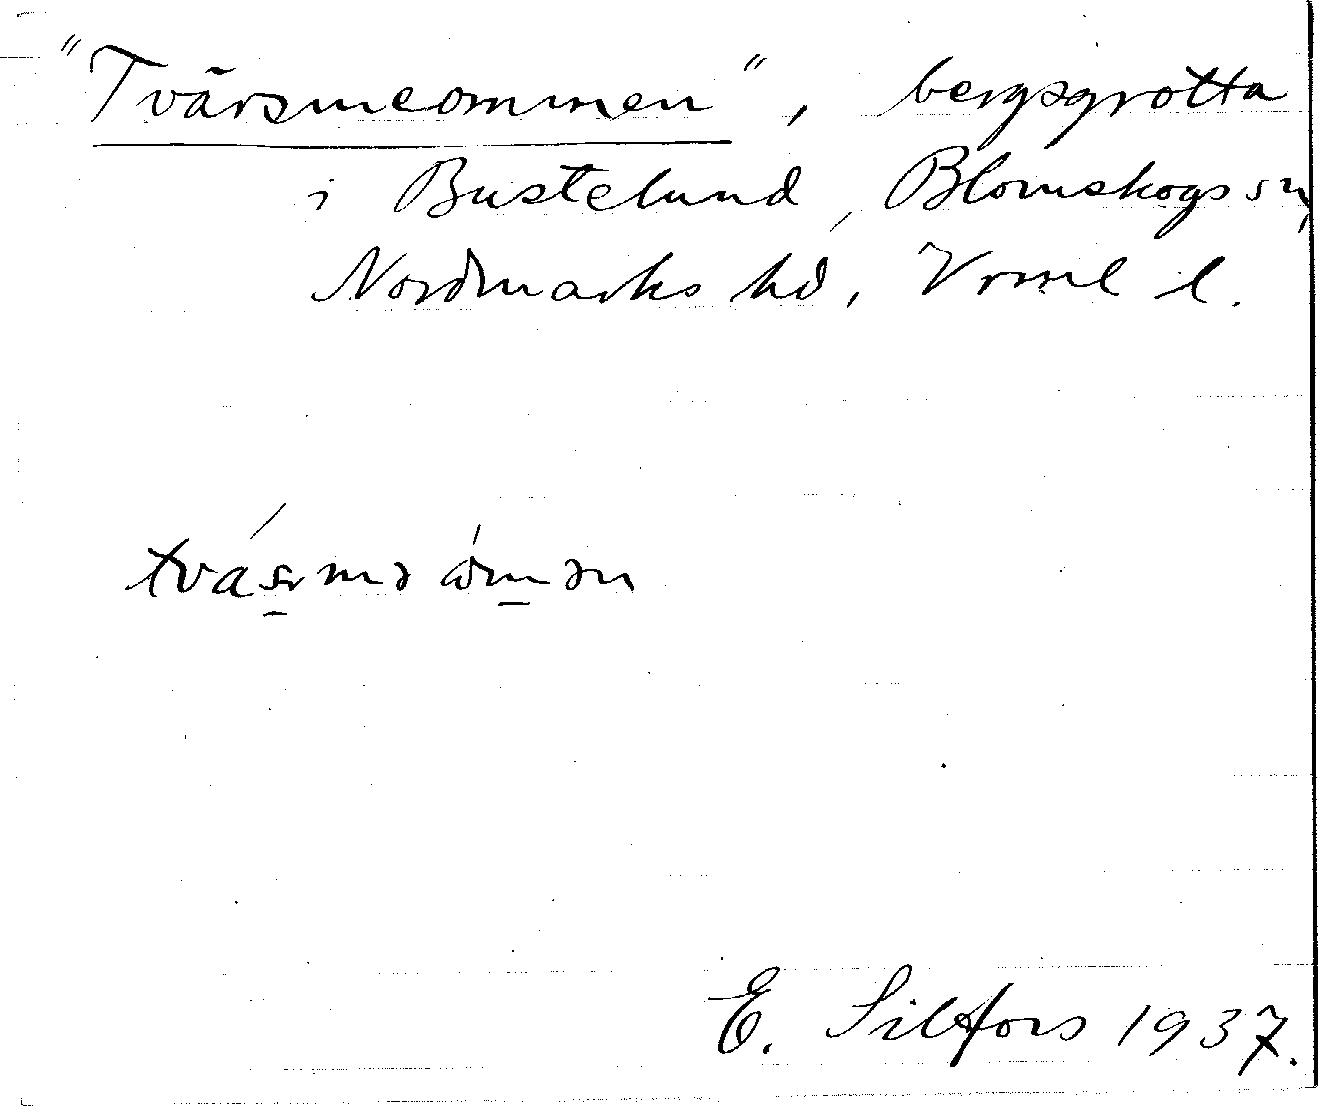 "Tvärsmeommen", bergsgrotta
i Bustelund, Blomskogs sn,
Nordmarks hd, Vrml l.
E. Silfors 1937.